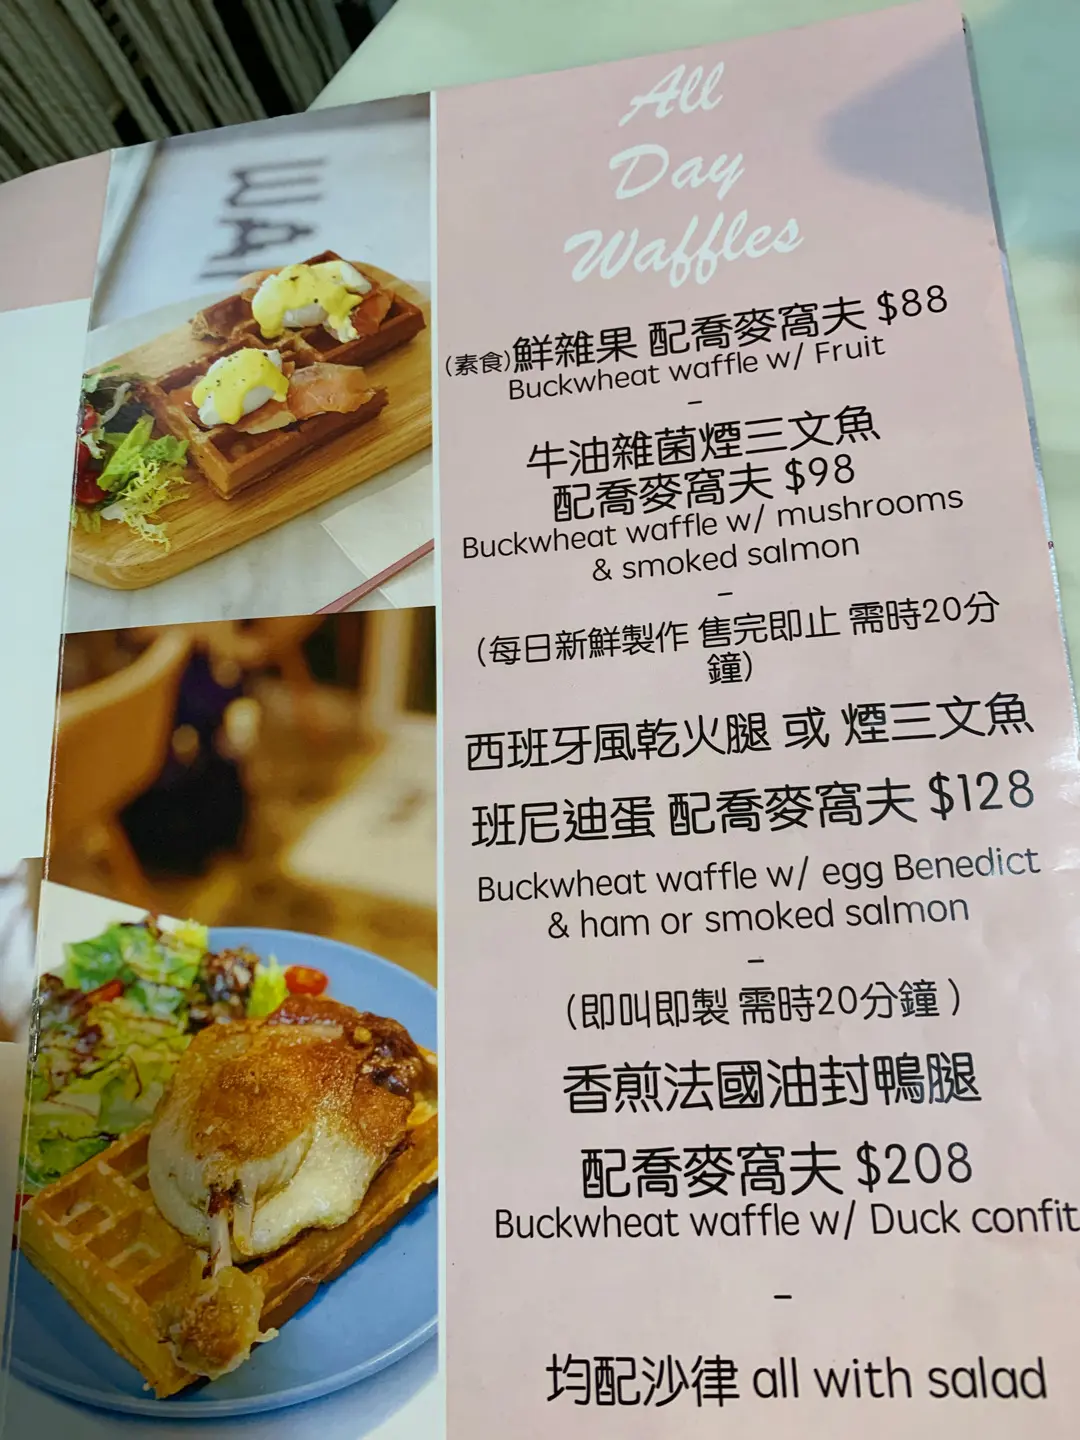 All
Day
Waffles
(素食)鮮雜果 配喬麥窩夫 $88
Buckwheat waffle w/ Fruit
–
牛油雜菌煙三文魚
配喬麥窩夫 $98
Buckwheat waffle w/ mushrooms
& smoked salmon
–
(每日新鮮製作 售完即止 需時20分
鐘)
西班牙風乾火腿 或 煙三文魚
班尼迪蛋 配喬麥窩夫 $128
Buckwheat waffle w/ egg Benedict
& ham or smoked salmon
–
(即叫即製 需時20分鐘 )
香煎法國油封鴨腿
配喬麥窩夫 $208
Buckwheat waffle w/ Duck confit
–
均配沙律 all with salad